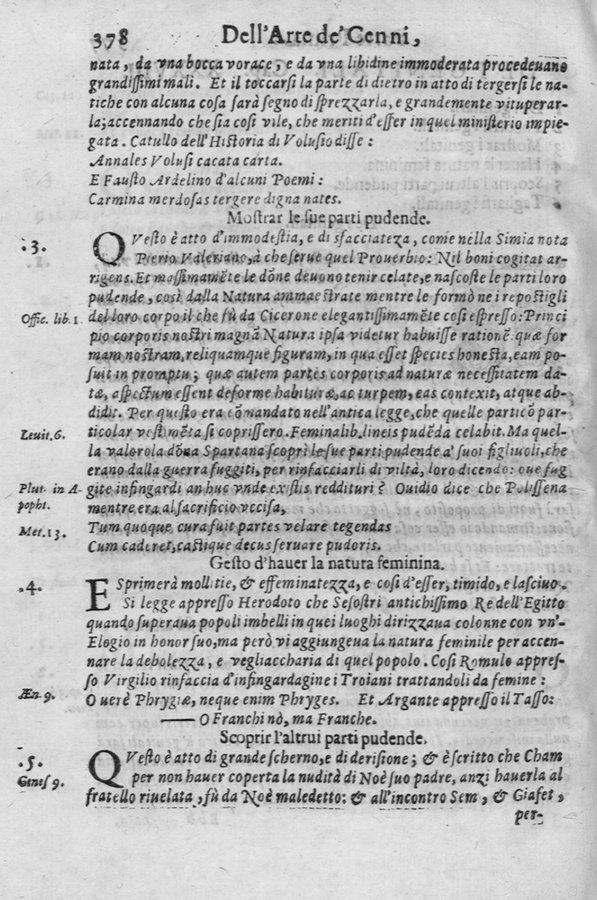 378 Dell'Arte de'Cenni,
nata, da vna bocca vorace, e da vna libidine immoderata procedeuano
grandissimi mali. Et il toccarsi la parte di dietro in atto di tergersi le na-
tiche con alcuna cosa sarà segno di sprezzarla, e grandemente vituperar-
la; accennando che sia cosi vile, che meriti d'esser in quel ministerio impie-
gata. Catullo dell'Historia di Volusio disse:
Annales Volusi cacata carta.
E Fausto Ardelino d'alcuni Poemi:
Carmina merdosas tergere digna nates.
Mostrar le sue parti pudende.
.3. Qvesto è atto d'immodestia, e di sfacciateza, come nella Simia nota
Pierio Valeriano, à che serue quel Prouerbio: Nil boni cogitat ar-
rigens. Et massimamẽte le dõne deuono tenir celate, e nascoste le parti loro
pudende, così dalla Natura ammaestrate mentre le formò ne i repostigli
Offic. lib. 1. del loro corpo il che fù da Cicerone elegantissimamẽte cosi espresso: Princi
pio corporis nostri magnã Natura ipsa videtur habuisse rationẽ: quæ for
mam nostram, reliquamque figuram, in qua esset species honesta, eam po-
suit in promptu; quæ autem partes corporis ad naturæ necessitatem da-
tæ, aspectum essent deforme habituræ, ac turpem, eas contexit, atque ab-
didit. Per questo era cõmandato nell'antica legge, che quelle particõ par-
Leuit. 6. ticolar vestimẽta si coprissero. Feminalib. lineis pudẽda celabit. Ma quel-
la valorola dõna Spartana scoprì le sue parti pudende a' suoi figliuoli, che
erano dalla guerra fuggiti, per rinfacciarli di viltà, loro dicendo: oue fug
Plut. in A- gite infingardi an huc vnde existis reddituri? Ouidio dice che Polissena
popht. mentre era al sacrificio vccisa,
Met. 13. Tum quoque cura fuit partes velare tegendas
Cum caderet, castique decus seruare pudoris.
Gesto d'hauer la natura feminina.
.4. Esprimerà mollitie, & effeminatezza, e cosi d'esser, timido, e lasciuo.
Si legge appresso Herodoto che Sesostri antichissimo Re dell'Egitto
quando superaua popoli imbelli in quei luoghi dirizzaua colonne con vn'-
Elogio in honor suo, ma però vi aggiungeua la natura feminile per accen-
nare la debolezza, e vegliaccharia di quel popolo. Cosi Romulo appres-
so Virgilio rinfaccia d'infingardagine i Troiani trattandoli da femine:
Æn 9. O uerè Phrygiæ, neque enim Phryges. Et Argante appresso il Tasso:
— O Franchi nò, ma Franche.
Scoprir l'altrui parti pudende.
.5. Qvesto è atto di grande scherno, e di derisione; & è scritto che Cham
Genes 9. per non hauer coperta la nudità di Noè suo padre, anzi hauerla al
fratello riuelata, fù da Noè maledetto: & all'incontro Sem, & Giafet,
per-